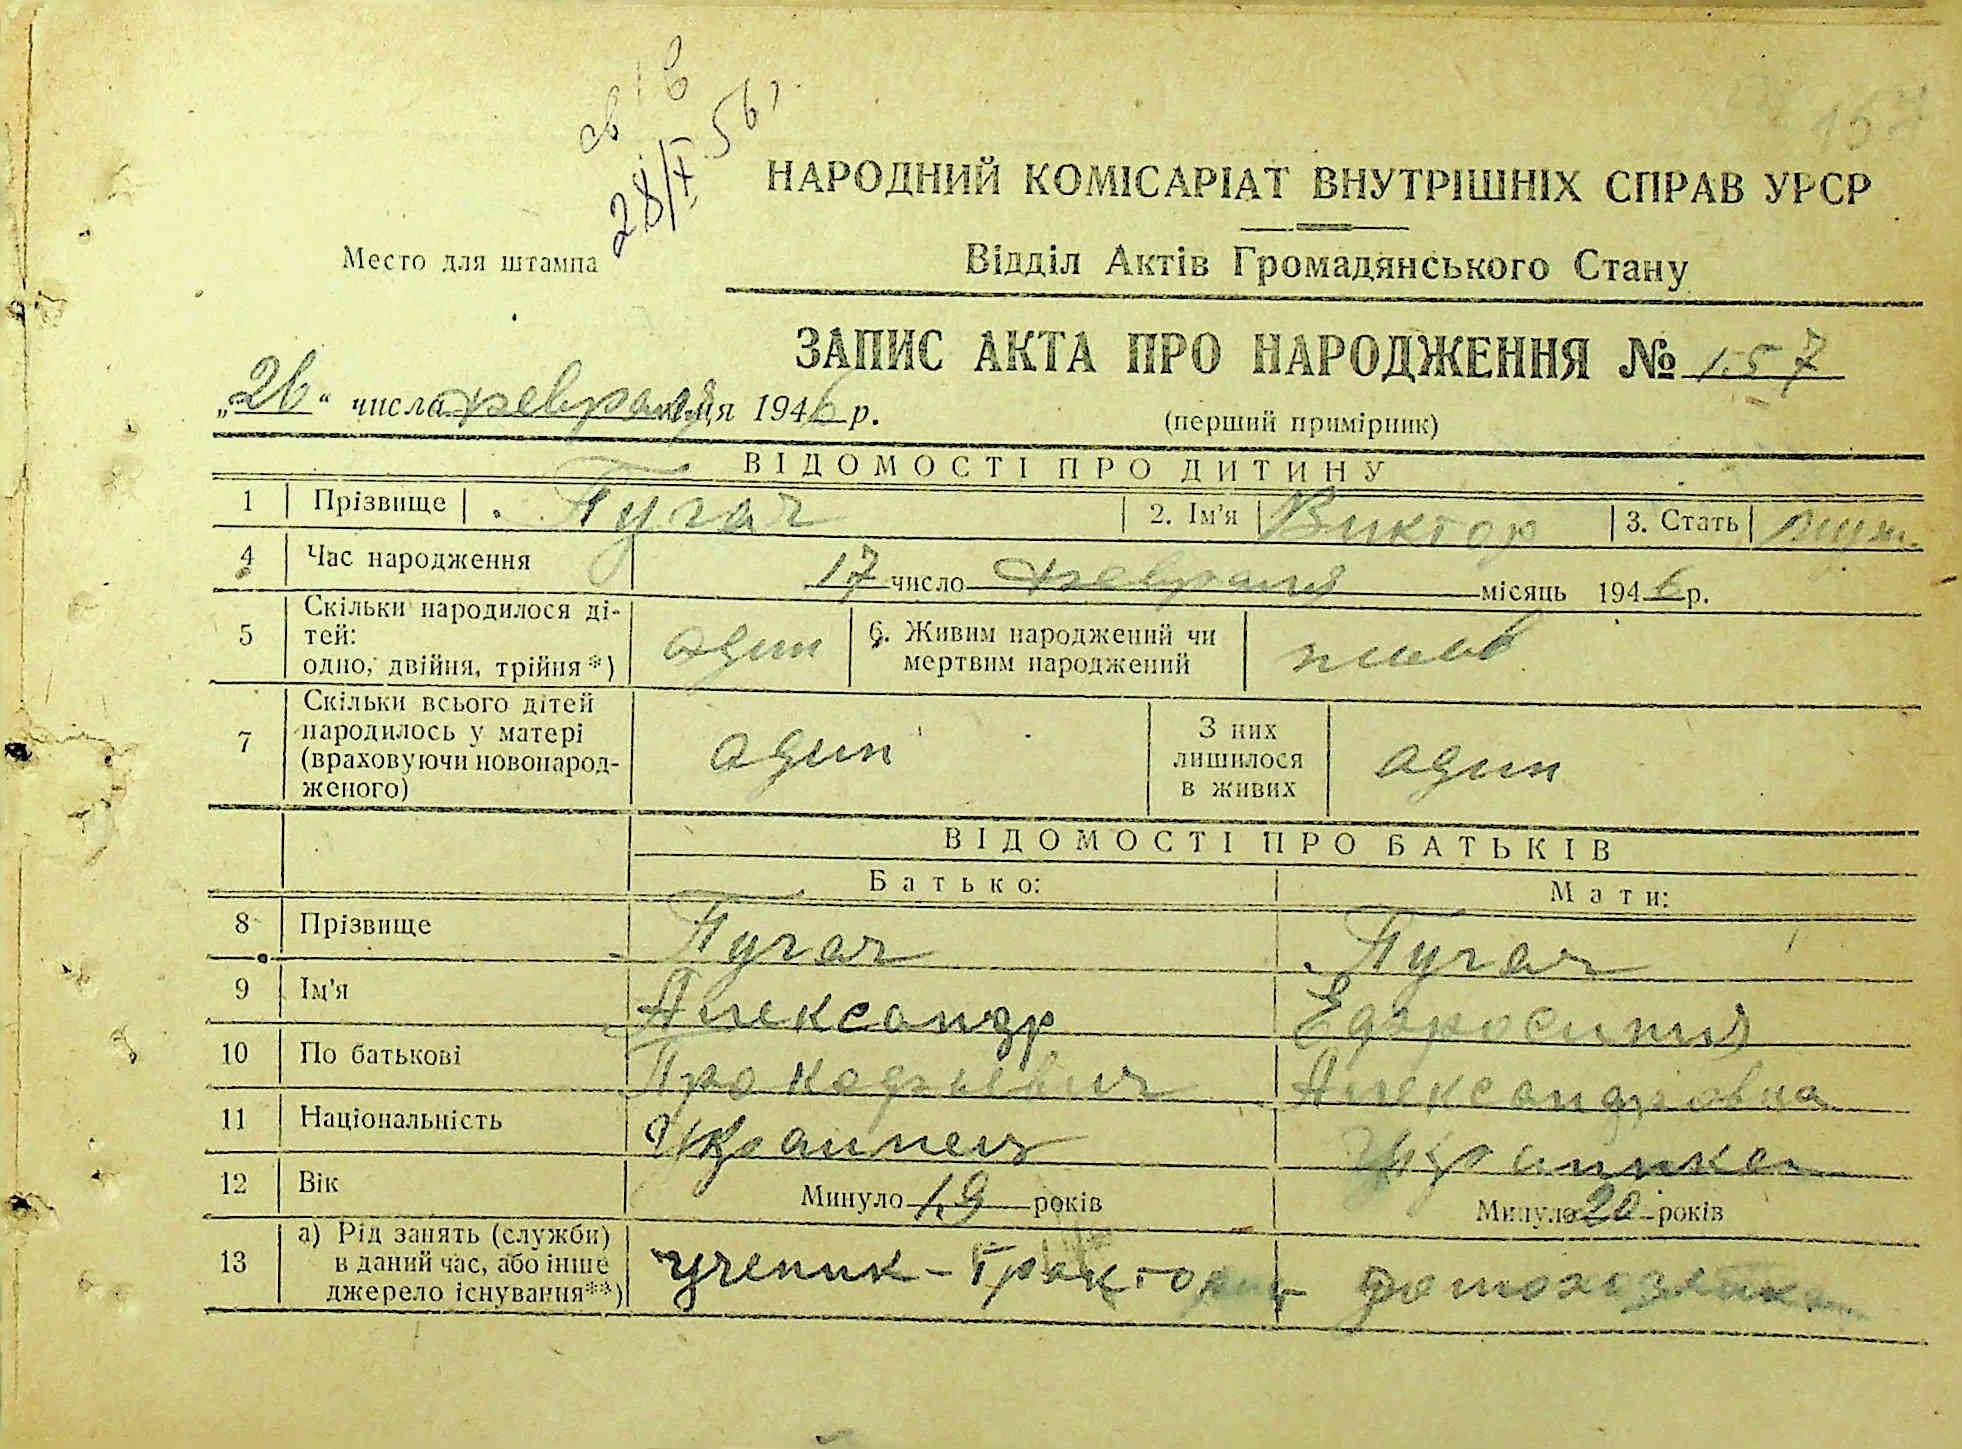 св в
28/X 56,
157
НАРОДНИЙ КОМІСАРІАТ ВНУТРІШНІХ СПРАВ УРСР
Место для штампа
Відділ Актів Громадянського Стану
ЗАПИС АКТА ПРО НАРОДЖЕННЯ № 157
„26“ числа февраля м-ця 1946 р.
(перший примірник)
ВІДОМОСТІ ПРО ДИТИНУ
1 Прізвище Пугач 2. Ім'я Виктор 3. Стать муж.
4 Час народження 17 число февраля місяць 1946 р.
5 Скільки народилося ді-
тей:
одно, двійня, трійня*) один 6. Живим народжений чи
мертвим народжений живо
7 Скільки всього дітей
народилось у матері
(враховуючи новонарод-
женого) один З них
лишилося
в живих один
ВІДОМОСТІ ПРО БАТЬКІВ
Батько: Мати:
8 Прізвище Пугач Пугач
9 Ім'я Александр Ефросиния
10 По батькові Прокофьевич Александровна
11 Національність Украинец Украинка
12 Вік Минуло 19 років Минуло 20 років
13 а) Рід занять (служби)
в даний час, або інше
джерело існування**) ученик-тракторист домохозяйка